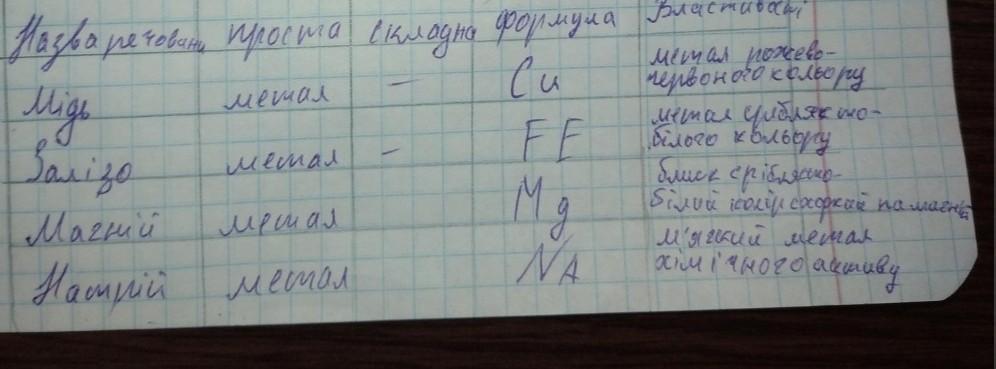 Назва речовини проста складна формула Властивості
Мідь метал – Cu метал рожево-
червоного кольору
Залізо метал – FE метал сріблясто-
білого кольору
Магній метал Mg блиск сріблясто-
білий колір
Натрій метал NA м'ягкий метал
хімічного активу